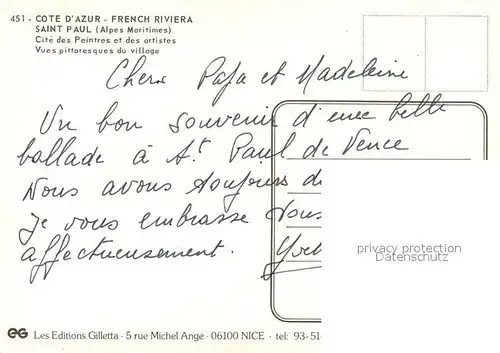 451 - COTE D'AZUR - FRENCH RIVIERA
SAINT PAUL (Alpes Maritimes)
Cité des Peintres et des artistes
Vues pittoresques du village
Chers Papa et Madeleine
Un bon souvenir d'une belle
ballade à St Paul de Vence
Nous avons toujours d
Je vous embrasse tous
affectueusement. Yve
privacy protection
Datenschutz
Les Editions Gilletta - 5 rue Michel Ange - 06100 NICE - tel: 93-51